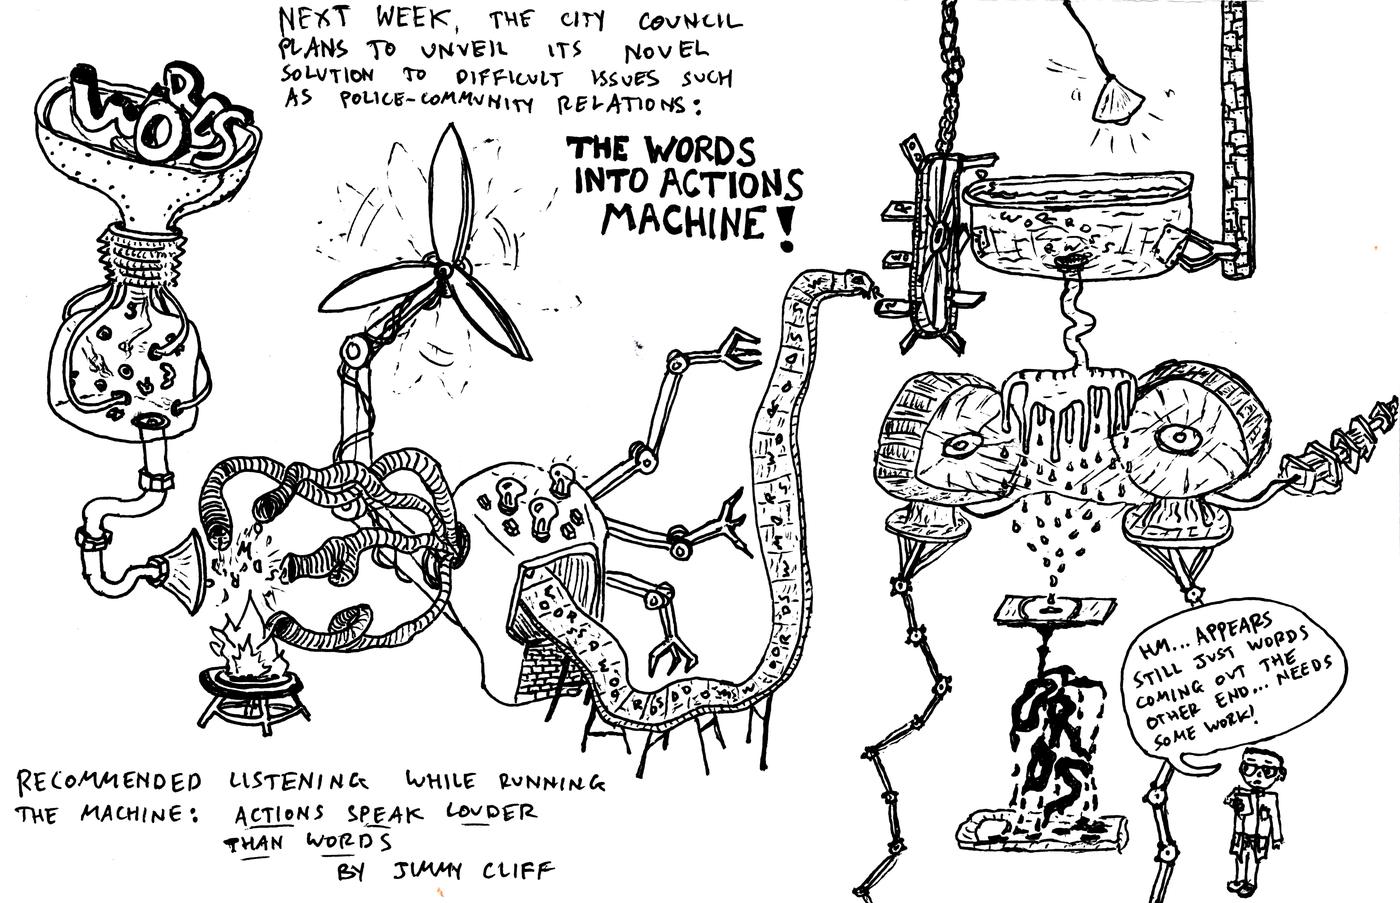 NEXT WEEK, THE CITY COUNCIL
PLANS TO UNVEIL ITS NOVEL
SOLUTION TO DIFFICULT ISSUES SUCH
AS POLICE-COMMUNITY RELATIONS:
THE WORDS
INTO ACTIONS
MACHINE!
WORDS
WORDS
HM... APPEARS
STILL JUST WORDS
COMING OUT THE
OTHER END... NEEDS
SOME WORK!
RECOMMENDED LISTENING WHILE RUNNING
THE MACHINE: ACTIONS SPEAK LOUDER
THAN WORDS
BY JIMMY CLIFF